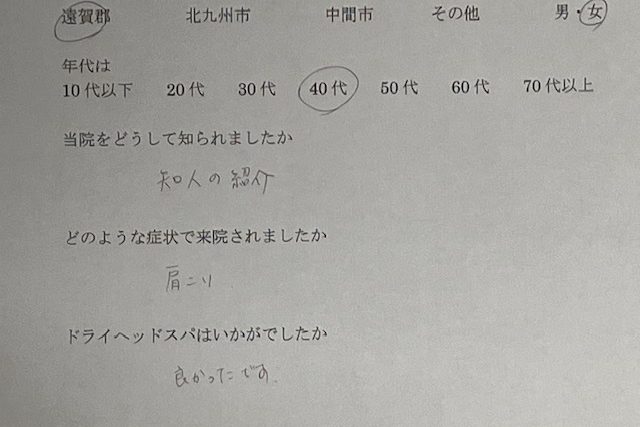 遠賀郡 北九州市 中間市 その他 男・女
年代は
10代以下 20代 30代 40代 50代 60代 70代以上
当院をどうして知られましたか
知人の紹介
どのような症状で来院されましたか
肩こり
ドライヘッドスパはいかがでしたか
良かったです.